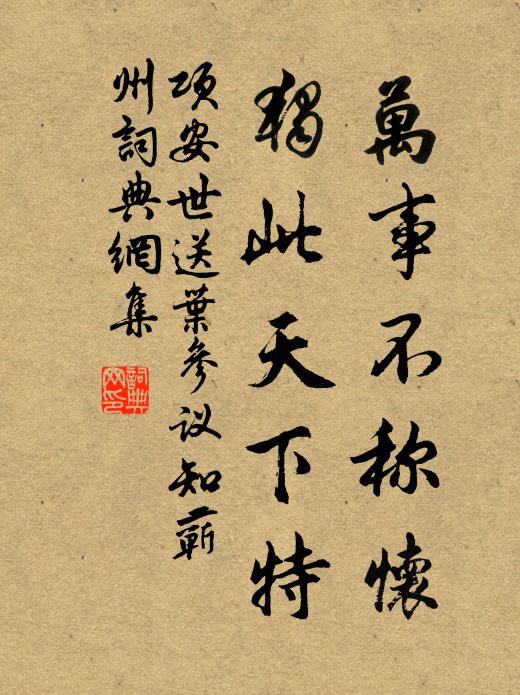 萬事不称懷
獨此天下特
项安世送葉參议知蕲
州詞典網集
詞典網印